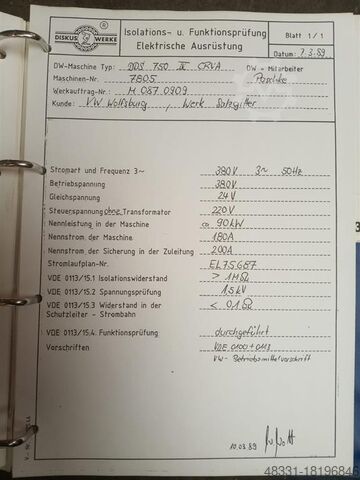 DISKUS WERKE
Isolations- u. Funktionsprüfung
Elektrische Ausrüstung
Blatt 1/1
Datum: 7.3.89
DW-Maschine Typ: DDS 750 IV CRVA
DW-Mitarbeiter
Maschinen-Nr. 7805 Paschke
Werkauftrag-Nr.: M 087 0909
Kunde: VW Wolfsburg, Werk Salzgitter
Stromart und Frequenz 3~ 380V 3~ 50Hz
Betriebspannung 380V
Gleichspannung 24V
Steuerspannung ohne Transformator 220V
Nennleistung in der Maschine ca 90kW
Nennstrom der Maschine 180A
Nennstrom der Sicherung in der Zuleitung 200A
Stromlaufplan-Nr. EL75687
VDE 0113/15.1 Isolationswiderstand > 1MΩ
VDE 0113/15.2 Spannungsprüfung 1,5kV
VDE 0113/15.3 Widerstand in der Schutzleiter - Strombahn < 0,1Ω
VDE 0113/15.4. Funktionsprüfung durchgeführt
Vorschriften VDE 0100+0113
VW-Betriebsmittelvorschrift
10.03.89
48331-18196846